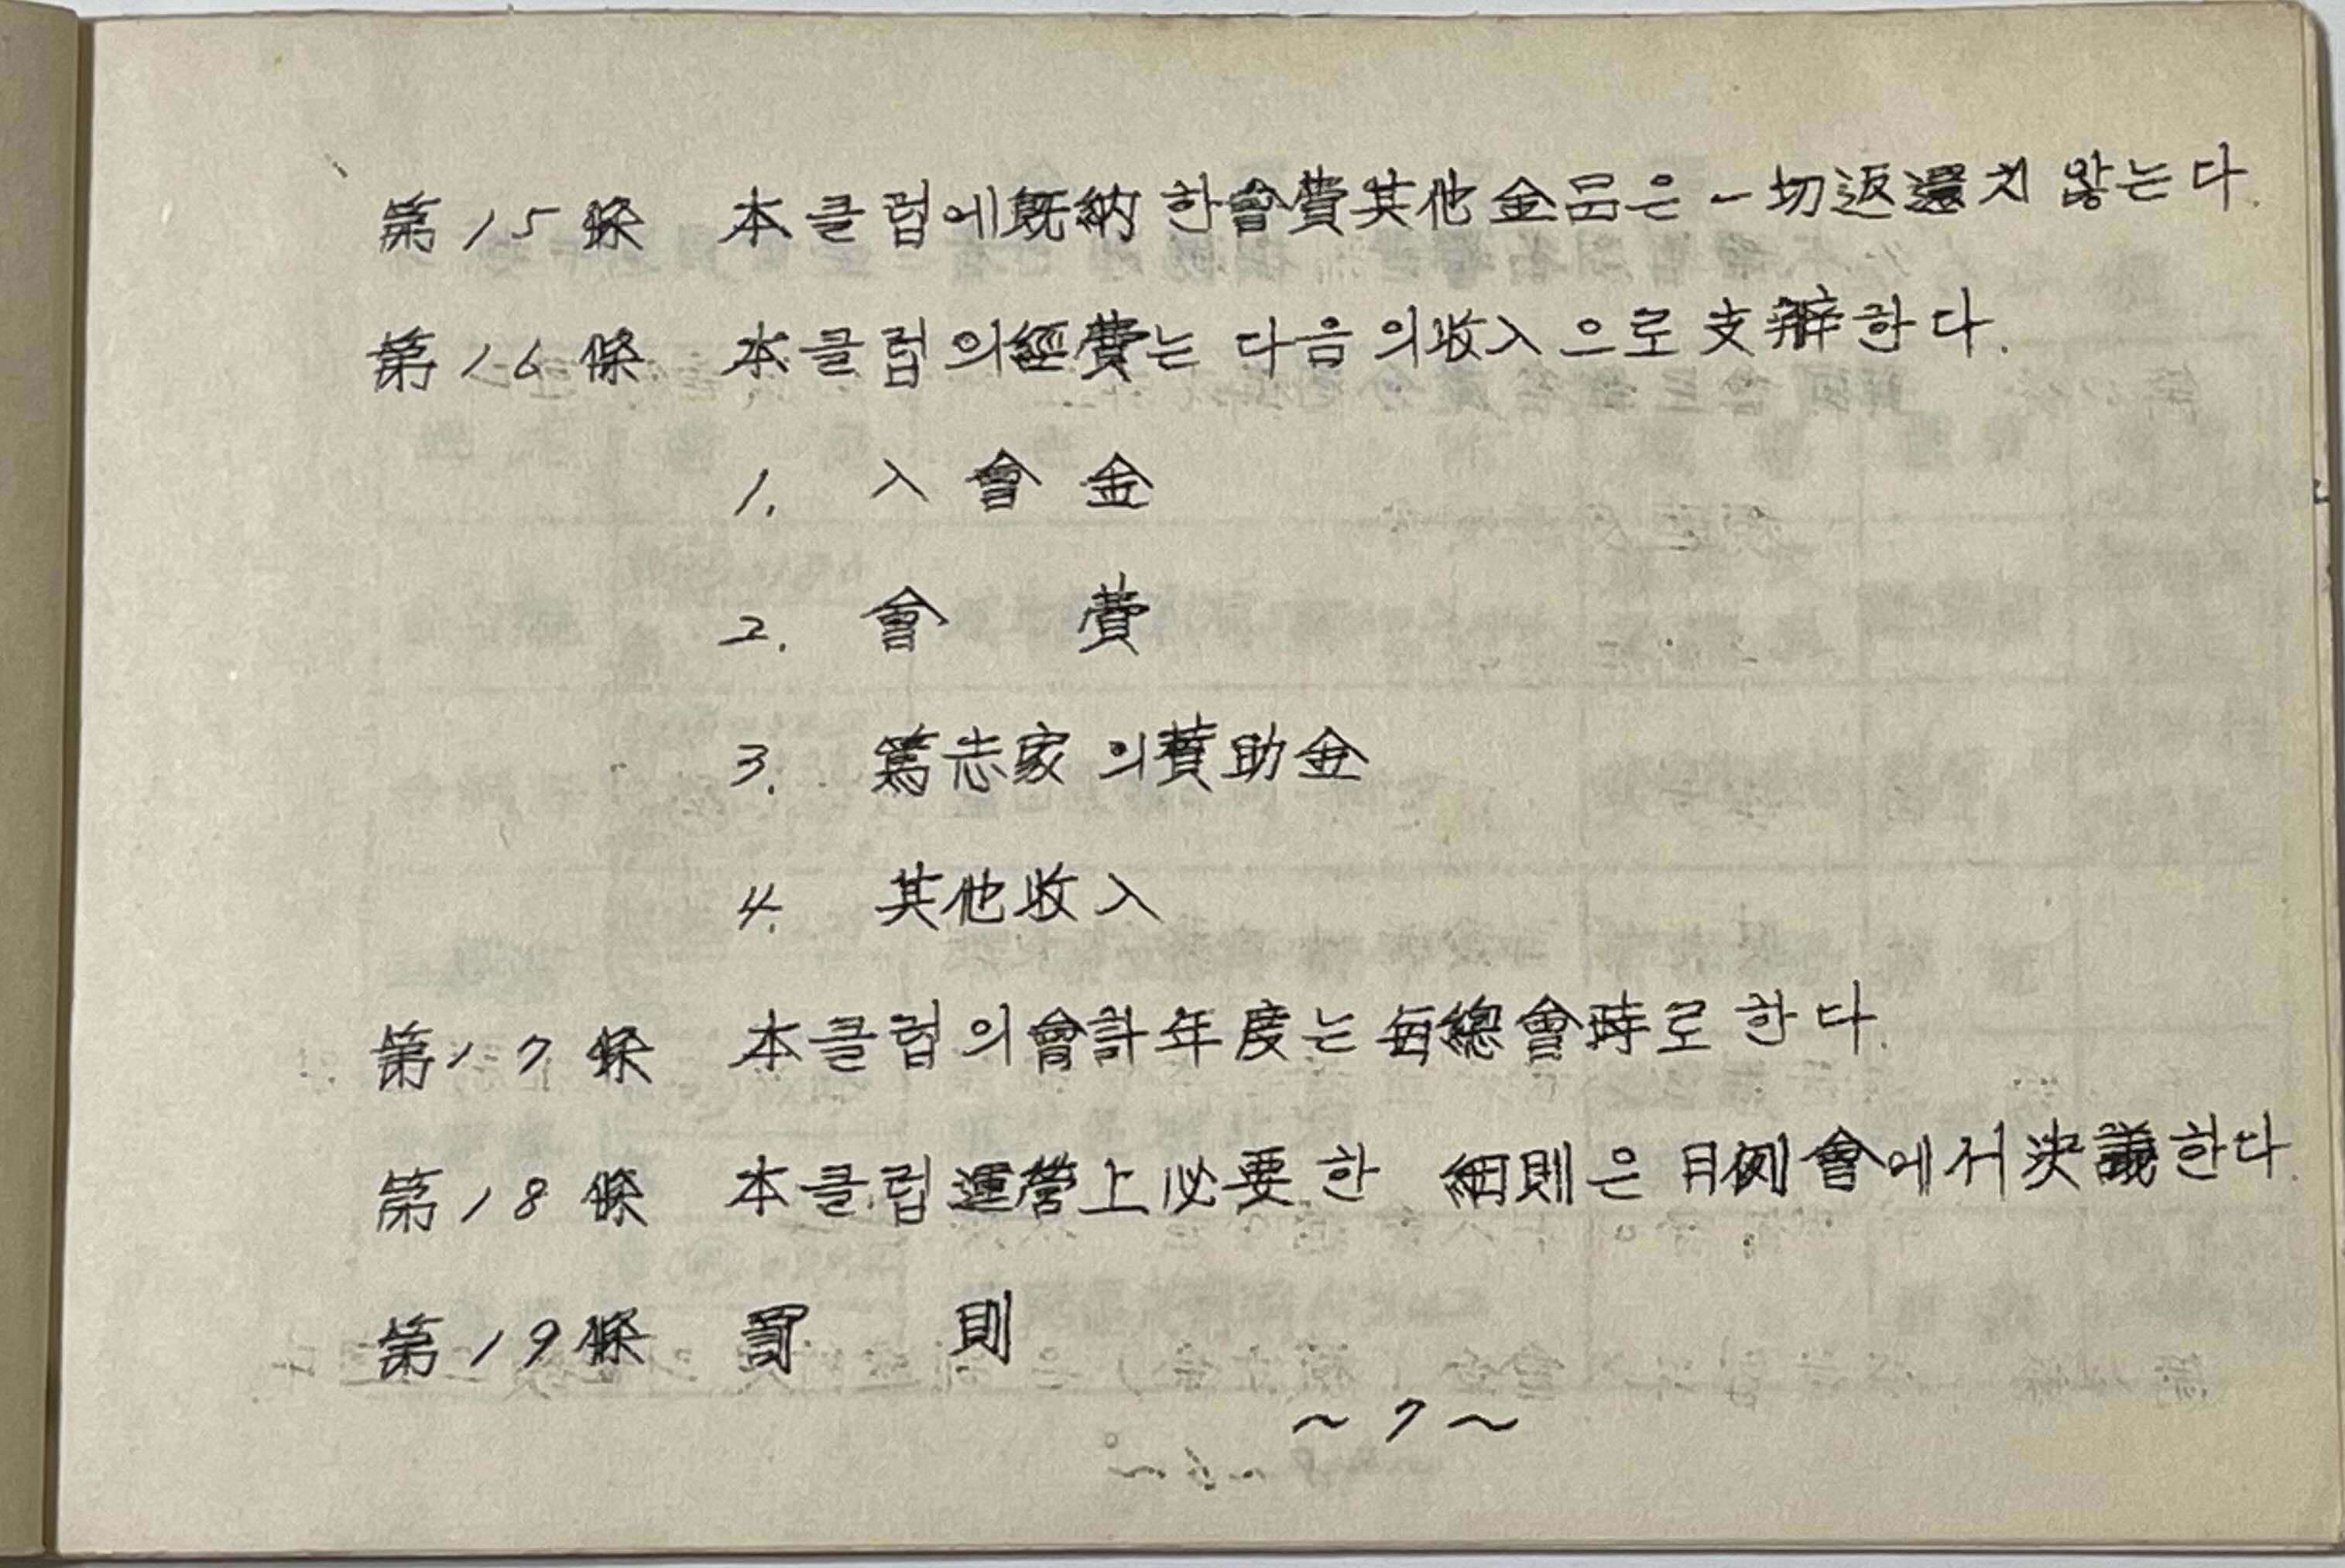 第15條 本클럽에旣納한會費其他金品은一切返還치않는다.
第16條 本클럽의經費는 다음의收入으로支辦한다.
1. 入會金
2. 會 費
3. 篤志家의賛助金
4. 其他收入
第17條 本클럽의會計年度는每總會時로한다.
第18條 本클럽運營上必要한 細則은月例會에서決議한다.
第19條 罰 則
~7~